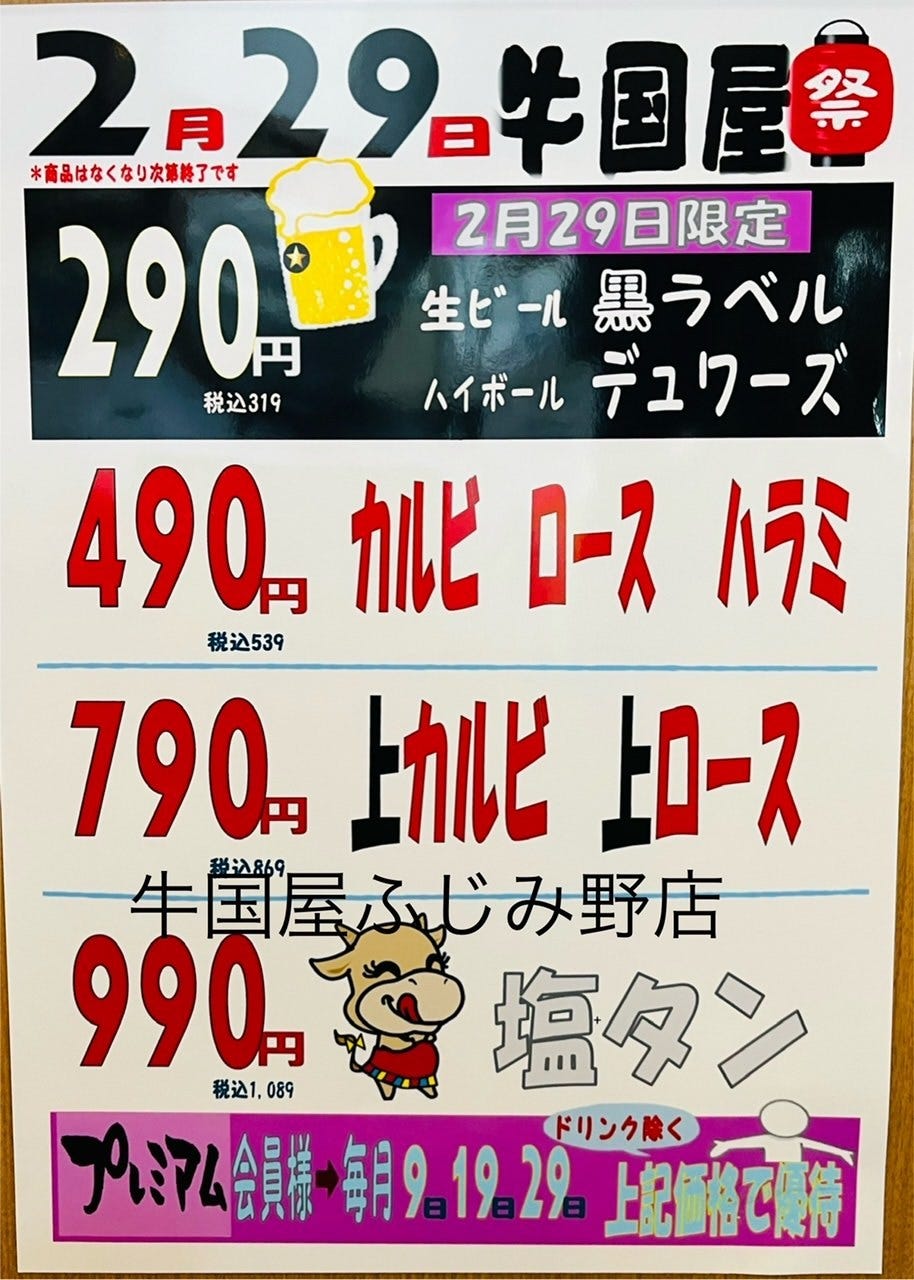 2月29日牛国屋祭
*商品はなくなり次第終了です
2月29日限定
290円
税込319
生ビール 黒ラベル
ハイボール デュワーズ
490円
税込539
カルビ ロース ハラミ
790円
税込869
上カルビ 上ロース
牛国屋ふじみ野店
990円
税込1,089
塩タン
ドリンク除く
プレミアム会員様➡毎月9日19日29日 上記価格で優待